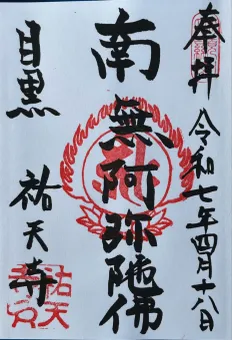 奉拝
令和七年四月十八日
南無阿弥陀佛
目黒
祐天寺
祐天
寺